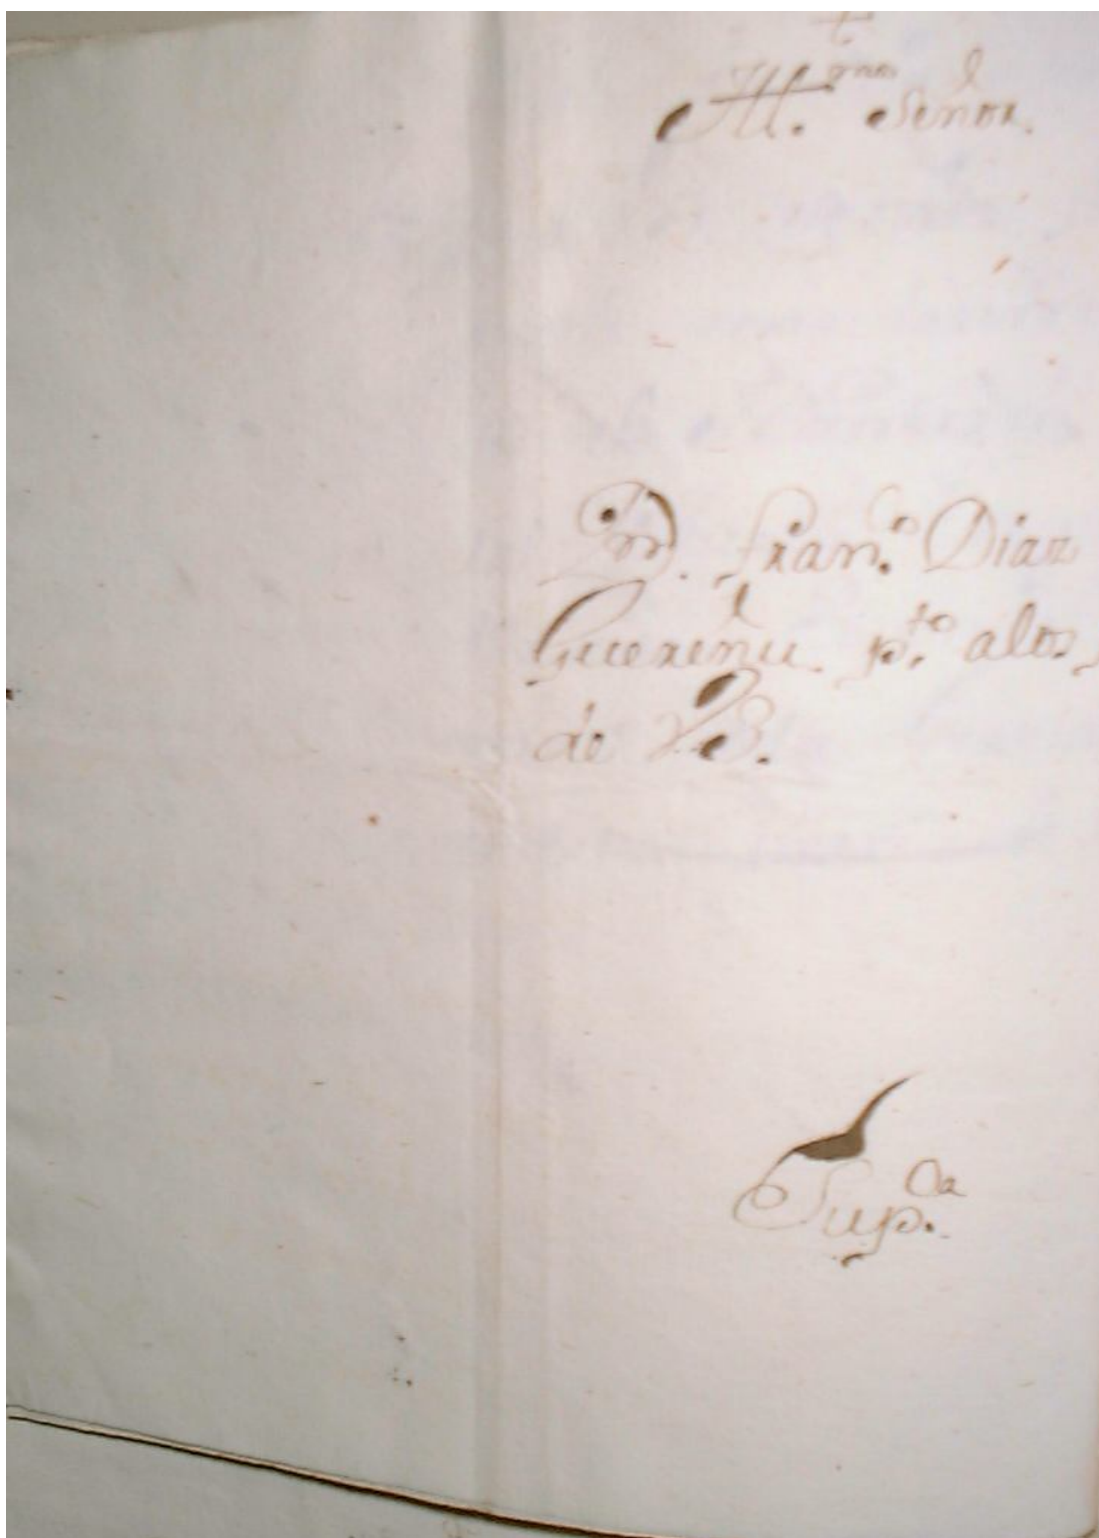 †
Ill.mo Señor
D. Fran.co Diaz
Guereñu p.to alos
de VS.
Sup.ca